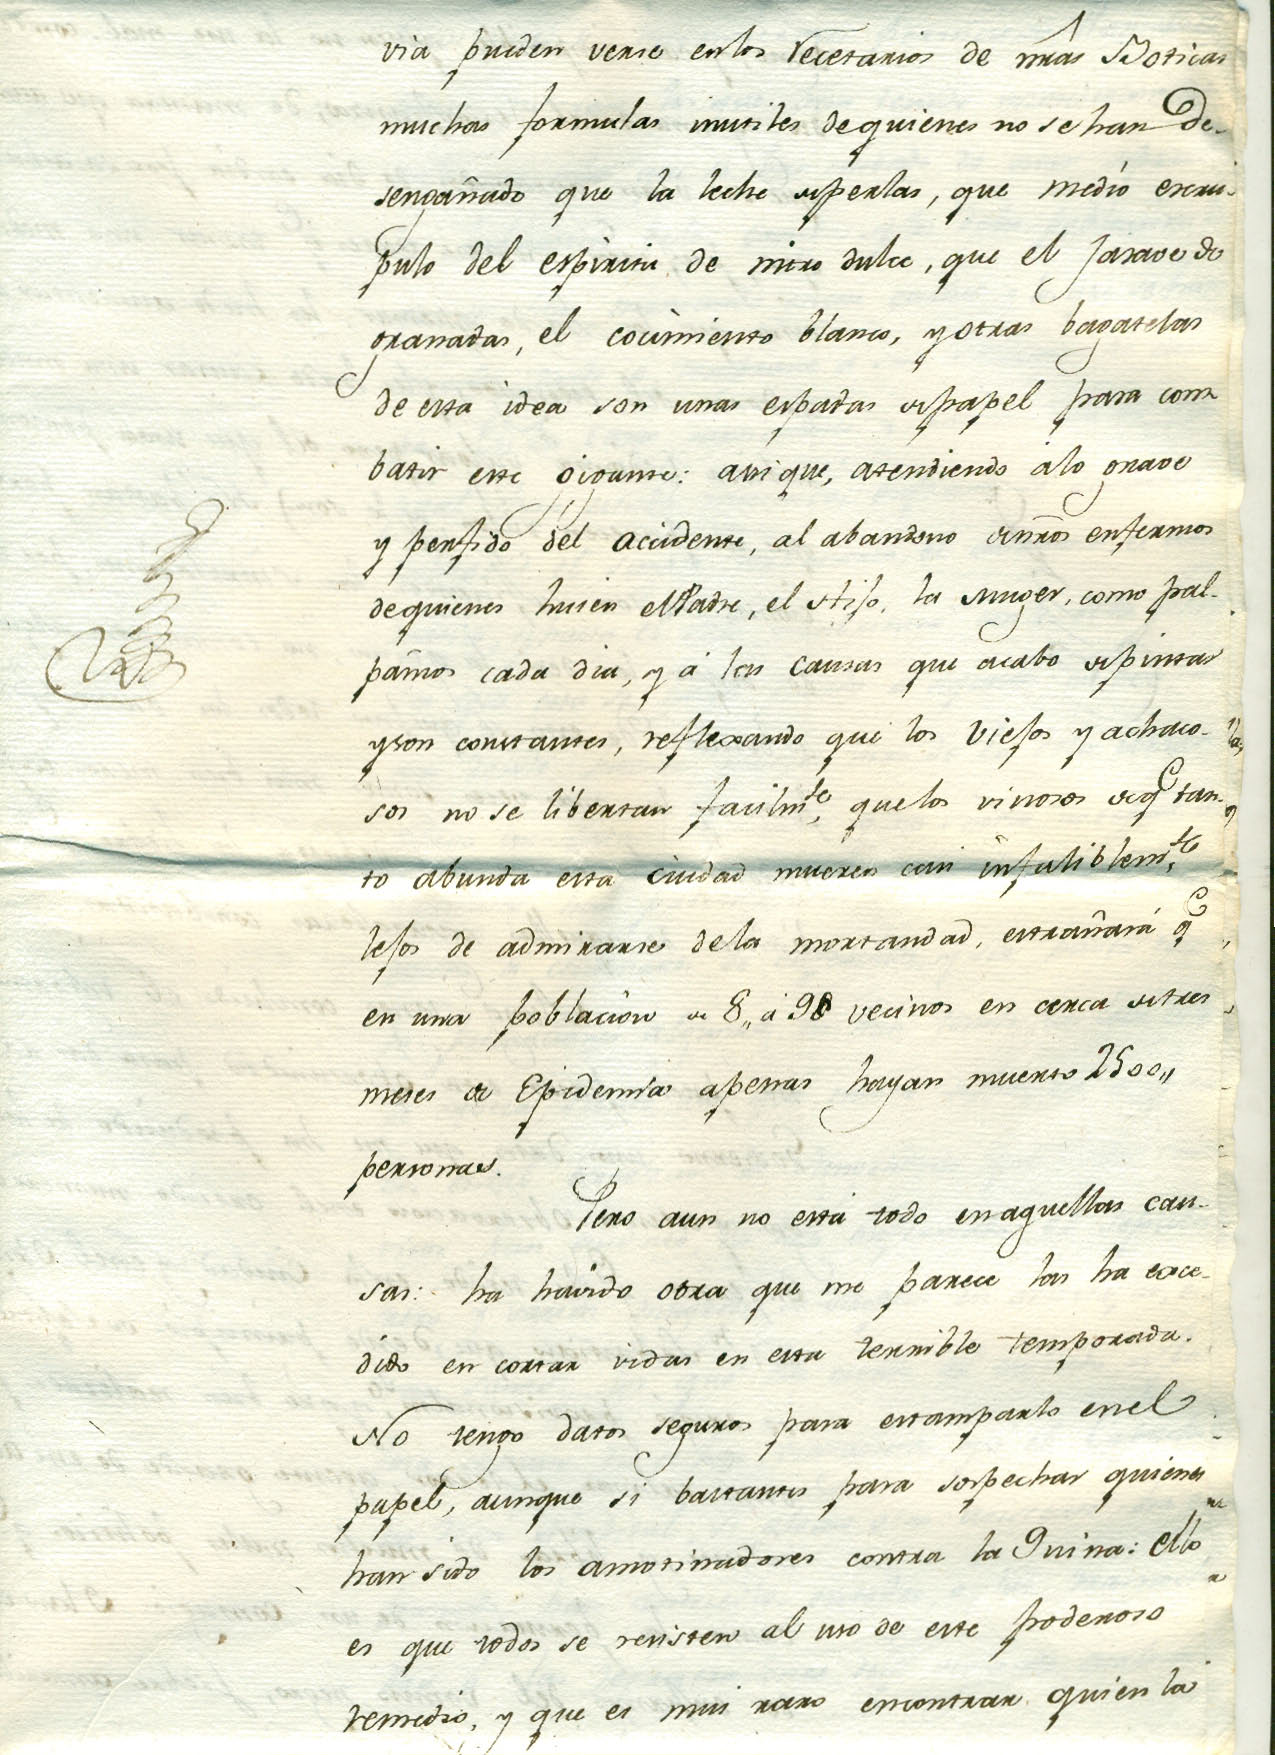 via pueden verse en los recetarios de nr̃as Boticas
muchas formulas inutiles de quienes no se han de-
sengañado que la leche de perlas, que medio escru-
pulo del espiritu de nitro dulce, que el jarave de
granadas, el cocimiento blanco, y otras bagatelas
de esta idea son unas espadas de papel para com-
batir este gigante: asi que, atendiendo á lo grave
y perfido del accidente, al abandono de nr̃os enfermos
de quienes huien el Padre, el Hijo, la Muger, como pal-
pam̃os cada dia, y á las causas que acabo de pintar
y son constantes, reflexando que los viejos y achaco-
sos no se libertan facilmte, que los vinosos de q̃ tan-
to abunda esta ciudad mueren casi infaliblemte,
lejos de admirarse de la mortandad, estrañará q̃
en una poblacion de 8,, á 9 vecinos en cerca de tres
meses de Epidemia apenas hayan muerto 2500,,
personas.
Pero aun no está todo en aquellas cau-
sas: ha havido otra que me parece las ha exce-
dido en cortar vidas en esta terrible temporada.
No tengo datos seguros para estamparlo en el
papel, aunque si bastantes para sospechar quienes
han sido los amotinadores contra la Quina: ello
es que todos se resisten al uso de este poderoso
remedio, y que es mui raro encontrar quien la